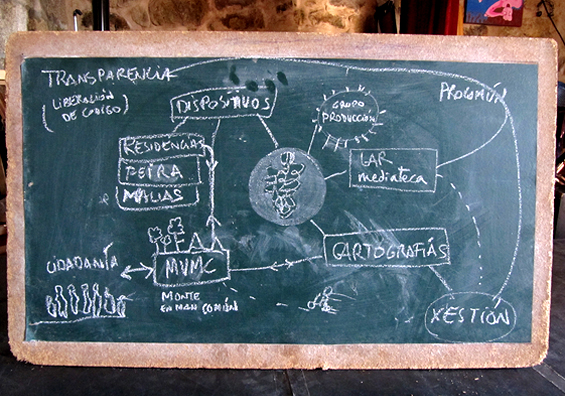 TRANSPARENCIA
(LIBERACIÓN
DE CODIGO)
DISPOSITIVOS
GRUPO
PRODUCCIÓN
PROCOMÚN
RESIDENCIAS
PEIRA
MALIAS
LAR
mediateca
CARTOGRAFIÁS
CIDADANÍA
MVMC
MONTE
EN MAN COMÚN
XESTIÓN